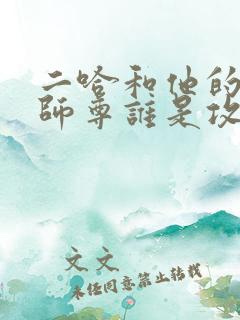 二哈和他的
師尊誰是攻
文文
未经同意禁止转载